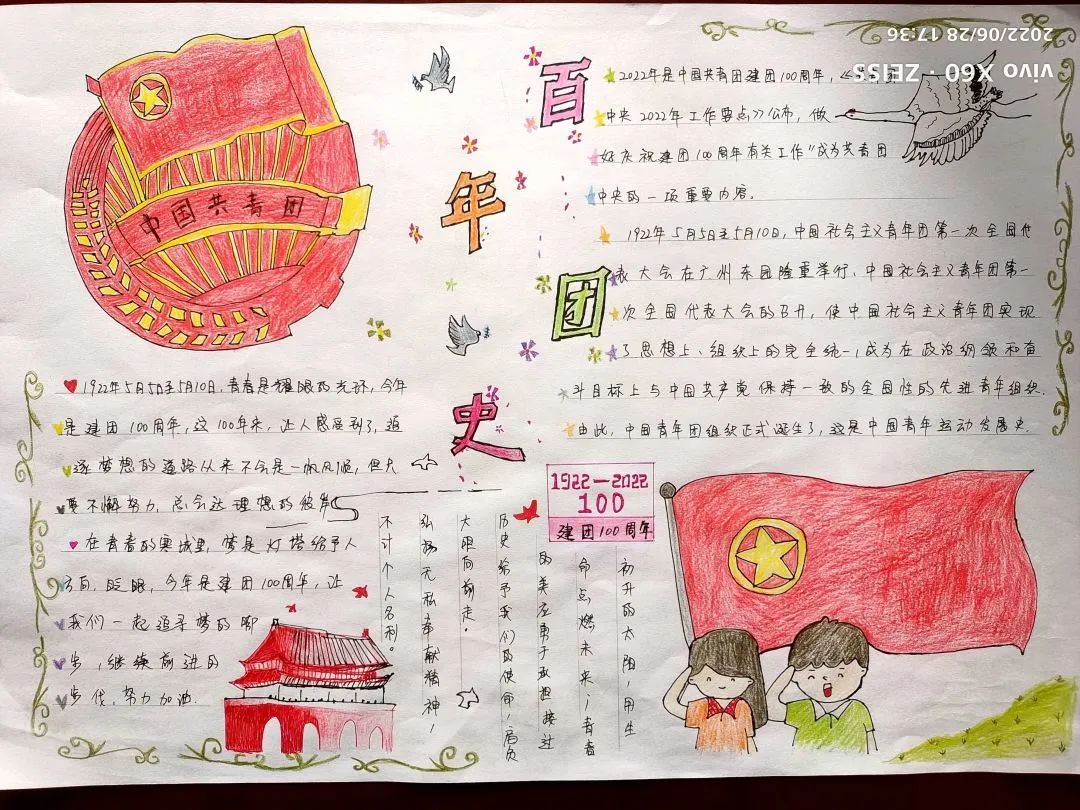 百年团史
中国共青团
2022年是中国共青团建团100周年,《共青团
中央2022年工作要点》公布,做
好庆祝建团100周年有关工作"成为共青团
中央的一项重要内容.
1922年5月5日至5月10日,中国社会主义青年团第一次全国代
表大会在广州东园隆重举行、中国社会主义青年团第一
次全国代表大会的召开,使中国社会主义青年团实现
了思想上、组织上的完全统一,成为在政治纲领和奋
斗目标上与中国共产党保持一致的全国性的先进青年组织.
由此,中国青年团组织正式诞生了,这是中国青年运动发展史.
1922年5月5日至5月10日,青春是耀眼的光环,今年
是建团100周年,这100年来,让人感受到了,追
逐梦想的道路从来不会是一帆风顺,但只
要不懈努力,总会达理想的彼岸
在青春的寒城里,梦是灯塔给予人
方向,眨眼,今年是建团100周年,让
我们一起追寻梦的脚
步,继续前进的
步伐,努力加油.
1922—2022
100
建团100周年
初升的太阳,用生
命点燃未来,青春
的美在勇于承担接过
历史给予我们的使命,肩负
大眼向前走。
弘扬无私奉献精神,
不讨个人名利。
vivo X60 · ZEISS
2022/06/28 17:36